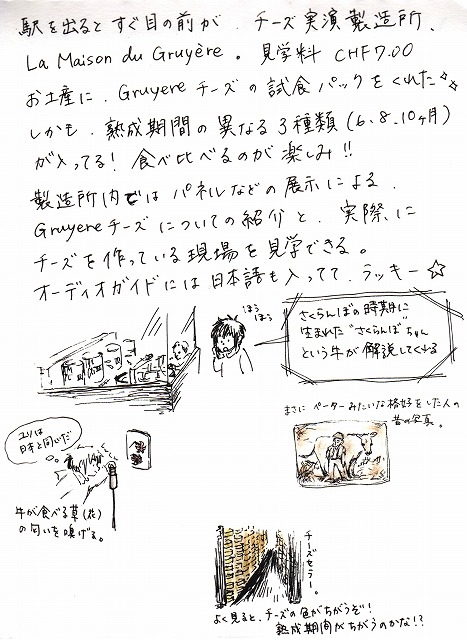 駅を出るとすぐ目の前が、チーズ実演製造所、
La Maison du Gruyère。見学料 CHF7.00
お土産に、Gruyereチーズの試食パックをくれた
しかも、熟成期間の異なる3種類(6、8、10ヶ月)
が入ってる!食べ比べるのが楽しみ!!
製造所内ではパネルなどの展示による、
Gruyereチーズについての紹介と、実際に
チーズを作っている現場を見学できる。
オーディオガイドには日本語も入ってて、ラッキー☆
ほうほう
さくらんぼの時期に
生まれた"さくらんぼ"ちゃん
という牛が解説してくれる
まさにペーターみたいな格好をした人の
昔の写真。
ユリは
日本と同じだ
牛が食べる草(花)
の匂いを嗅げる。
チーズセラー。
よく見ると、チーズの色がちがうぞ!
熟成期間がちがうのかな!?